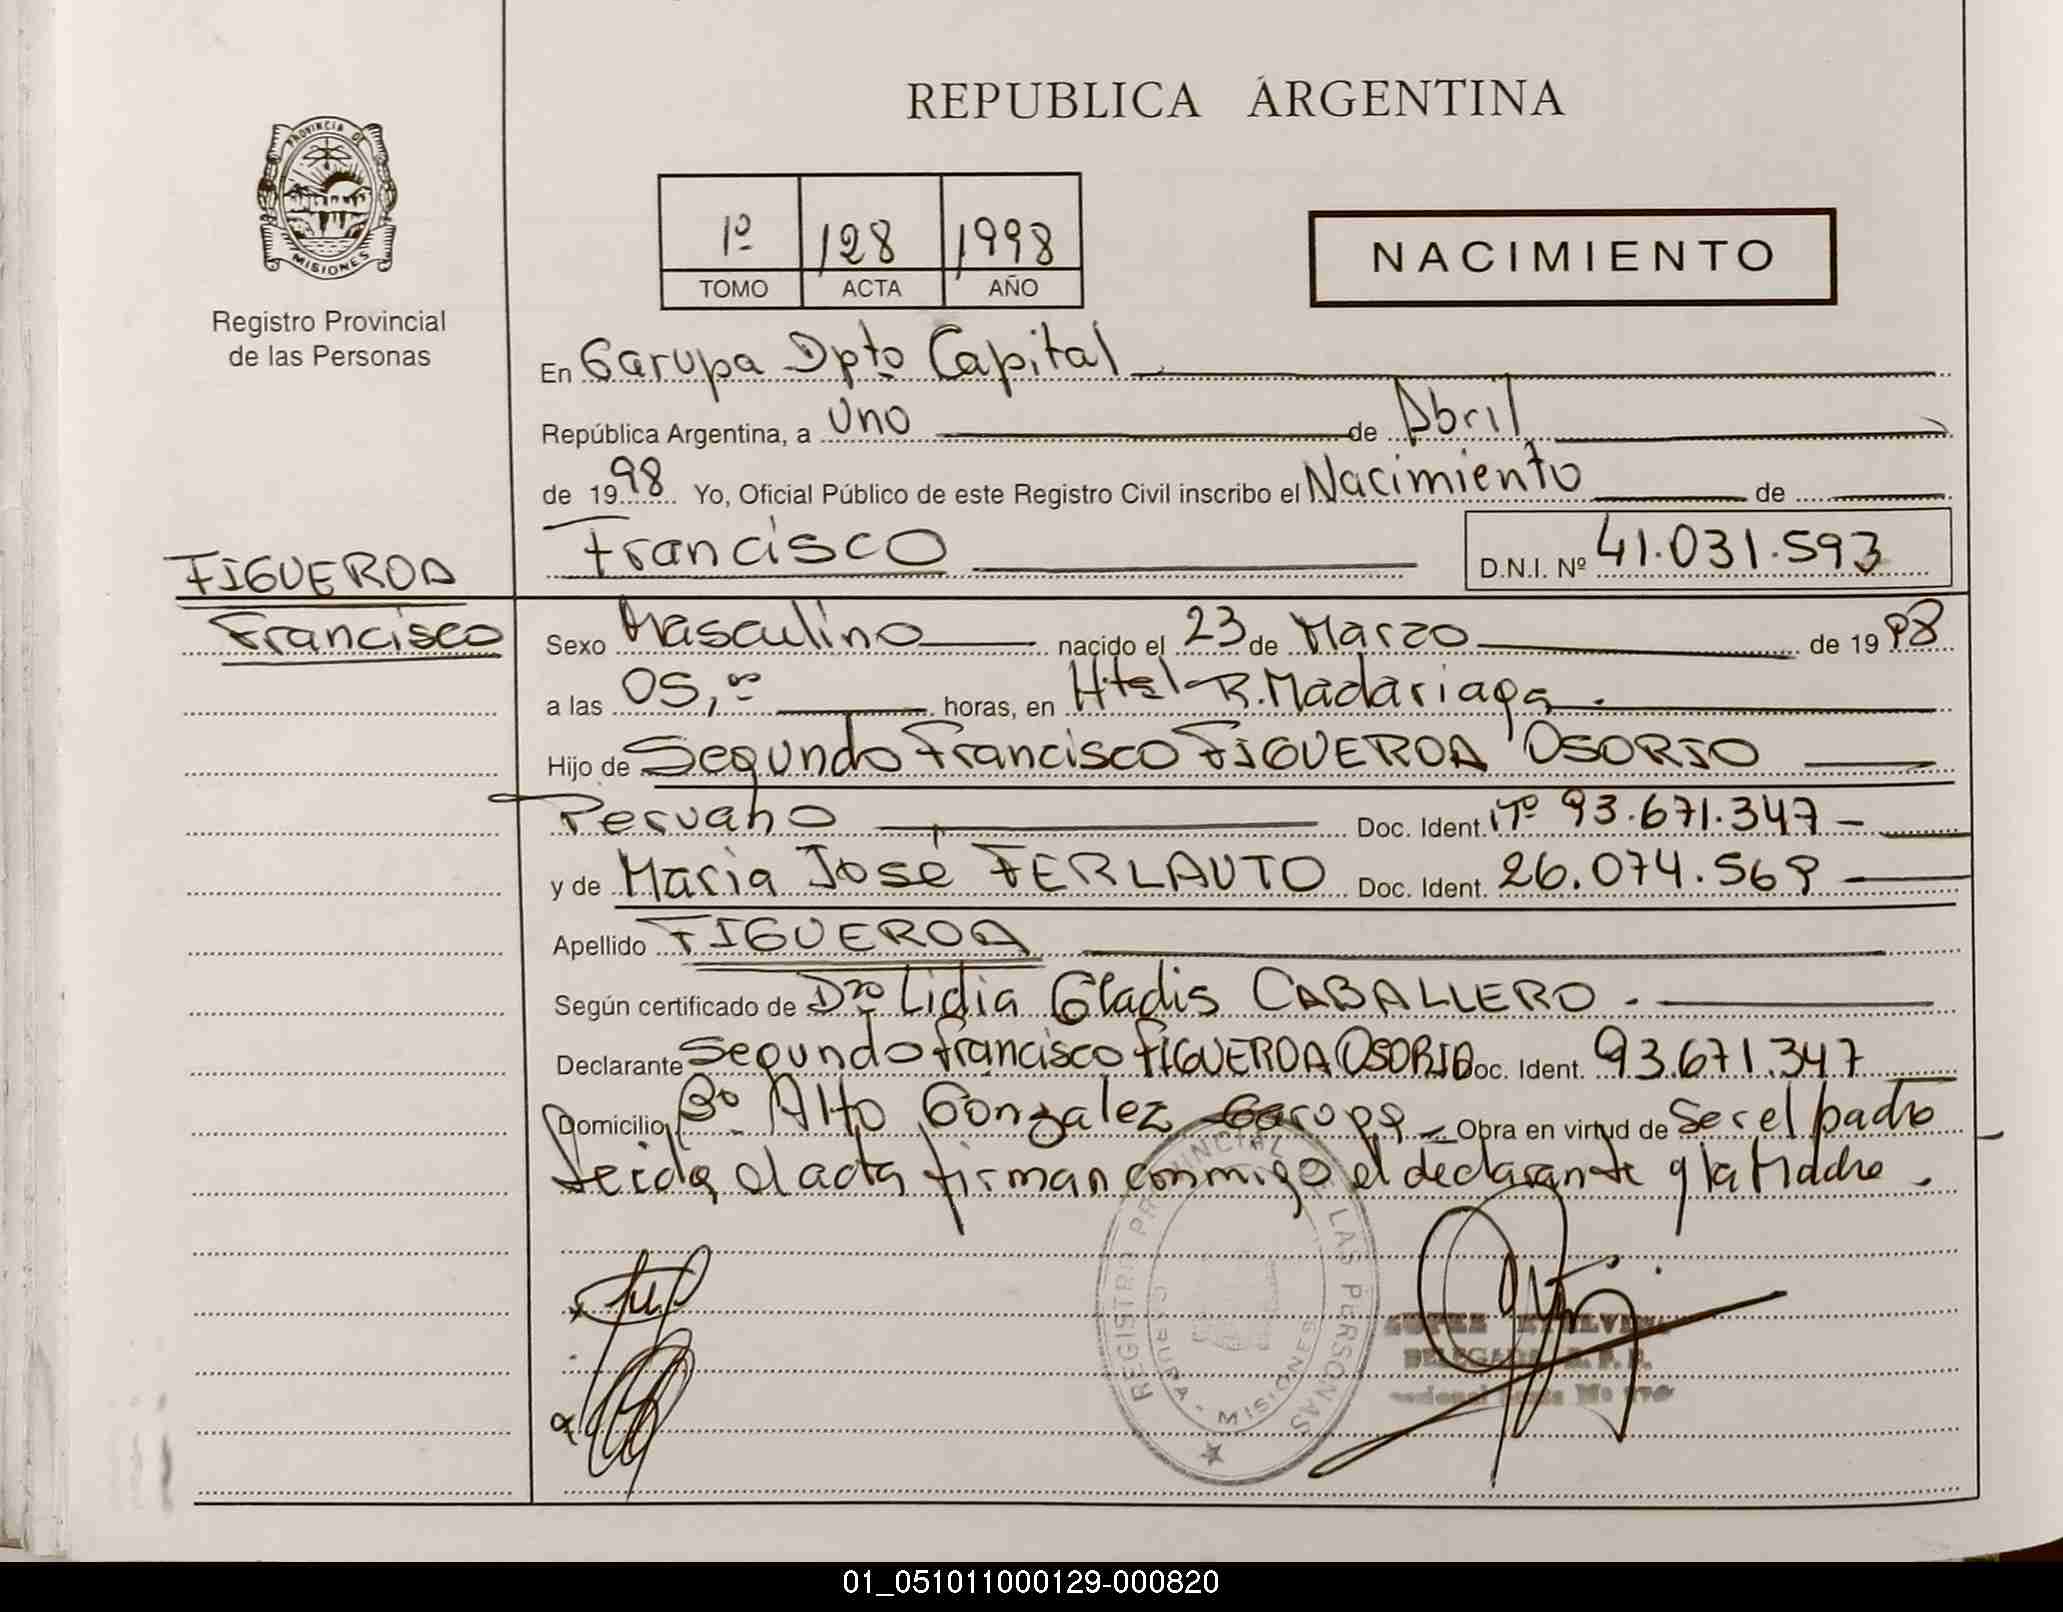 REPUBLICA ARGENTINA
PROVINCIA DE
MISIONES
Registro Provincial
de las Personas
1º 128 1998
TOMO ACTA AÑO
NACIMIENTO
En Garupa Dpto Capital
República Argentina, a Uno de Abril
de 1998 Yo, Oficial Público de este Registro Civil inscribo el Nacimiento de
Francisco D.N.I. Nº 41.031.593
FIGUEROA
Francisco
Sexo Masculino nacido el 23 de Marzo de 1998
a las 05,ºº horas, en Htal R. Madariaga.
Hijo de Segundo Francisco FIGUEROA OSORIO
Peruano Doc. Ident. Nº 93.671.347
y de Maria José FERLAUTO Doc. Ident. 26.074.569
Apellido FIGUEROA
Según certificado de Dra Lidia Gladis CABALLERO.
Declarante Segundo Francisco FIGUEROA OSORIO Doc. Ident. 93.671.347
Domicilio Bº Alto Gonzalez Garupa Obra en virtud de ser el padre
Leida el acta firman conmigo el declarante y la Madre.
REGISTRO PROVINCIAL DE LAS PERSONAS
MISIONES
DELEGADA R. P. P.
01_051011000129-000820